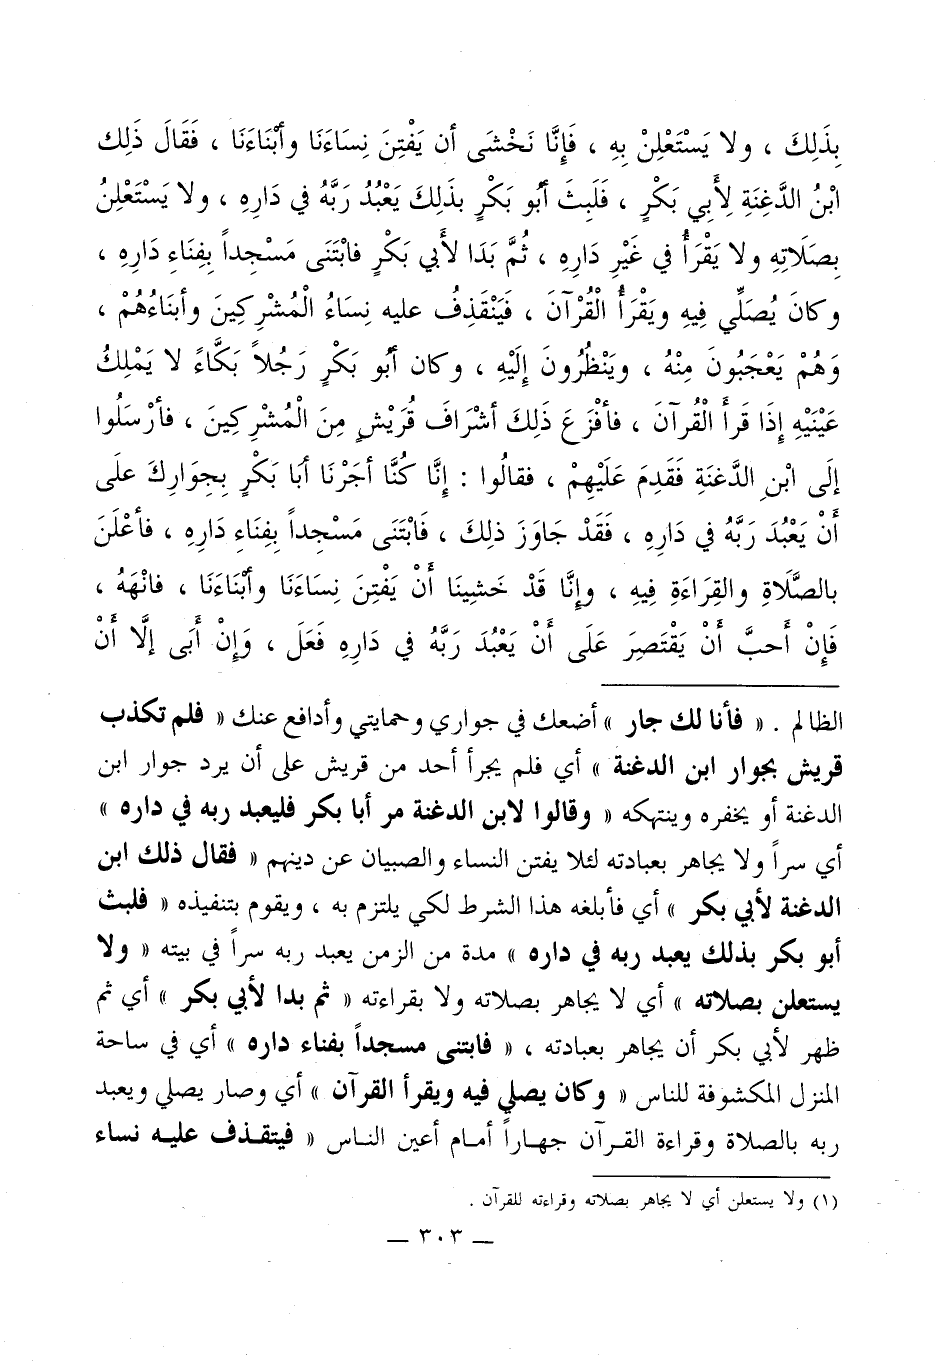 بِذَلِكَ ، ولا يَسْتَعْلِنْ بِهِ ، فَإِنَّا نَخْشَى أن يَفْتِنَ نِسَاءَنَا وأبْنَاءَنَا ، فَقَالَ ذَلِك
ابْنُ الدَّغِنَةِ لِأَبِي بَكْرٍ ، فَلَبِثَ أبُو بَكْرٍ بذَلِكَ يَعْبُدُ رَبَّهُ في دَارِهِ ، ولا يَسْتَعْلِنُ
بِصَلَاتِهِ ولا يَقْرَأُ في غَيْرِ دَارِهِ ، ثُمَّ بَدَا لأَبي بَكْرٍ فابْتَنَى مَسْجِداً بِفِنَاءِ دَارِهِ ،
وكانَ يُصَلِّي فِيهِ ويَقْرَأُ الْقُرْآنَ ، فَيَنْقَذِفُ عليه نِسَاءُ الْمُشْرِكِينَ وأبنَاءُهُمْ ،
وَهُمْ يَعْجَبُونَ مِنْهُ ، ويَنْظُرُونَ إِلَيْهِ ، وكان أبُو بَكْرٍ رَجُلاً بَكَّاءً لا يَمْلِكُ
عَيْنَيْهِ إِذَا قَرأَ الْقُرآنَ ، فأفْزَعَ ذَلِكَ أشْرَافَ قُرَيْشٍ مِنَ الْمُشْرِكِينَ ، فأرْسَلُوا
إلَى ابْنِ الدَّغِنَةِ فَقَدِمَ عَلَيْهِمْ ، فقالُوا : إِنَّا كُنَّا أجَرْنَا أبَا بَكْرٍ بِجِوَارِكَ علَى
أَنْ يَعْبُدَ رَبَّهُ في دَارِهِ ، فَقَدْ جَاوَزَ ذلِكَ ، فَابْتَنَى مَسْجِداً بِفنَاءِ دَارِهِ ، فأعْلَنَ
بالصَّلَاةِ والقِرَاءَةِ فِيهِ ، وإنَّا قَدْ خَشِينَا أَنْ يَفْتِنَ نِسَاءَنَا وأبْنَاءَنَا ، فانْهَهُ ،
فَإِنْ أَحبَّ أَنْ يَقْتَصِرَ عَلَى أَنْ يَعْبُدَ رَبَّهُ في دَارِهِ فَعَلَ ، وَإِنْ أَبَى إلَّا أَنْ
الظالم . « فأنا لك جار » أضعك في جواري وحمايتي وأدافع عنك « فلم تكذب
قريش بجوار ابن الدغنة » أي فلم يجرأ أحد من قريش على أن يرد جوار ابن
الدغنة أو يخفره وينتهكه « وقالوا لابن الدغنة مر أبا بكر فليعبد ربه في داره »
أي سراً ولا يجاهر بعبادته لئلا يفتن النساء والصبيان عن دينهم « فقال ذلك ابن
الدغنة لأبي بكر » أي فأبلغه هذا الشرط لكي يلتزم به ، ويقوم بتنفيذه « فلبث
أبو بكر بذلك يعبد ربه في داره » مدة من الزمن يعبد ربه سراً في بيته « ولا
يستعلن بصلاته » أي لا يجاهر بصلاته ولا بقراءته « ثم بدا لأبي بكر » أي ثم
ظهر لأبي بكر أن يجاهر بعبادته ، « فابتنى مسجداً بفناء داره » أي في ساحة
المنزل المكشوفة للناس « وكان يصلي فيه ويقرأ القرآن » أي وصار يصلي ويعبد
ربه بالصلاة وقراءة القرآن جهاراً أمام أعين الناس « فيتقذف عليه نساء
(١) ولا يستعلن أي لا يجاهر بصلاته وقراءته للقرآن .
— ٣٠٣ —